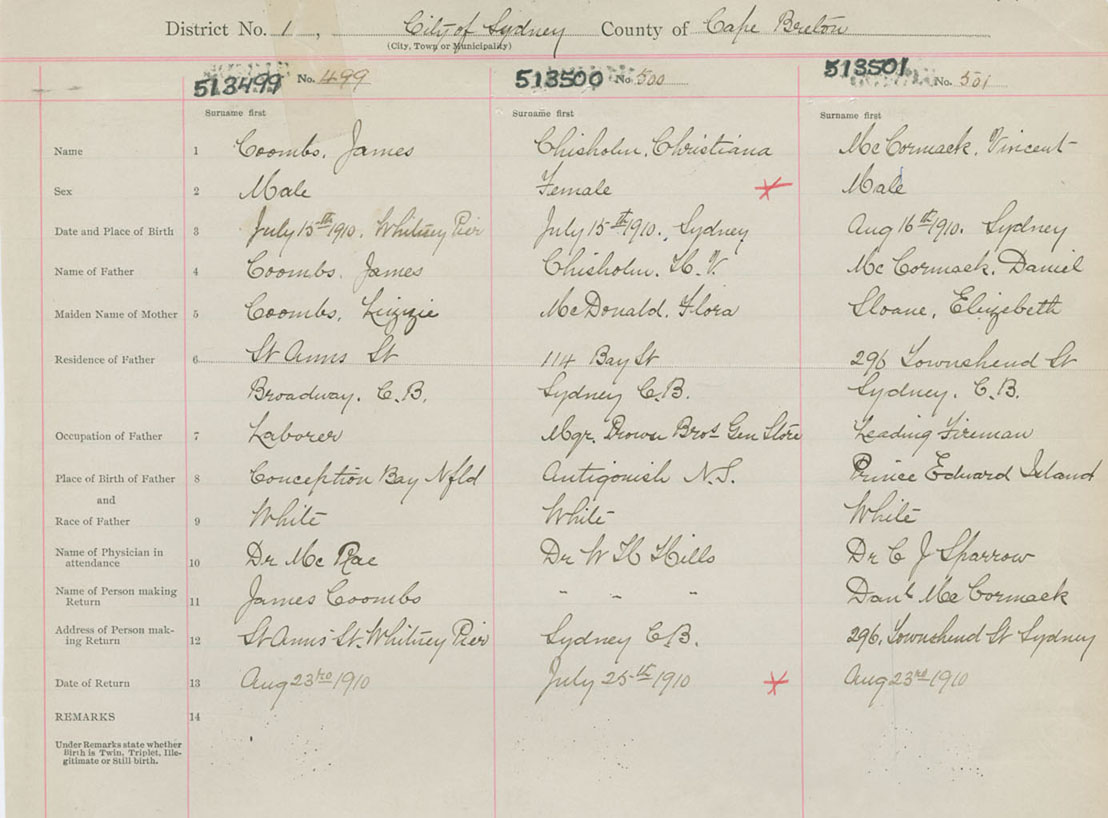 District No. 1, City of Sydney County of Cape Breton
(City, Town or Municipality)
513499 No. 499 513500 No. 500 513501 No. 501
Surname first Surname first Surname first
Name 1 Coombs, James Chisholm, Christiana McCormack, Vincent
Sex 2 Male Female Male
Date and Place of Birth 3 July 15th 1910. Whitney Pier July 15th 1910. Sydney Aug 16th 1910. Sydney
Name of Father 4 Coombs. James Chisholm. H. V. McCormack. Daniel
Maiden Name of Mother 5 Coombs, Lizzie McDonald. Flora Sloane, Elizebeth
Residence of Father 6 St Anns St 114 Bay St 296 Townshend St
Broadway. C.B. Sydney C.B. Sydney. C.B.
Occupation of Father 7 Laborer Mgr. Bros Gen Store Leading Fireman
Place of Birth of Father 8 Conception Bay Nfld Antigonish N.S. Prince Edward Island
and
Race of Father 9 White White White
Name of Physician in
attendance 10 Dr McRae Dr W H Hills Dr C J Sparrow
Name of Person making
Return 11 James Coombs " " " Danl McCormack
Address of Person mak-
ing Return 12 St Anns St. Whitney Pier Sydney C.B. 296. Townshend St Sydney
Date of Return 13 Aug 23rd 1910 July 25th 1910 Aug 23rd 1910
REMARKS 14
Under Remarks state whether
Birth is Twin, Triplet, Ille-
gitimate or Still birth.